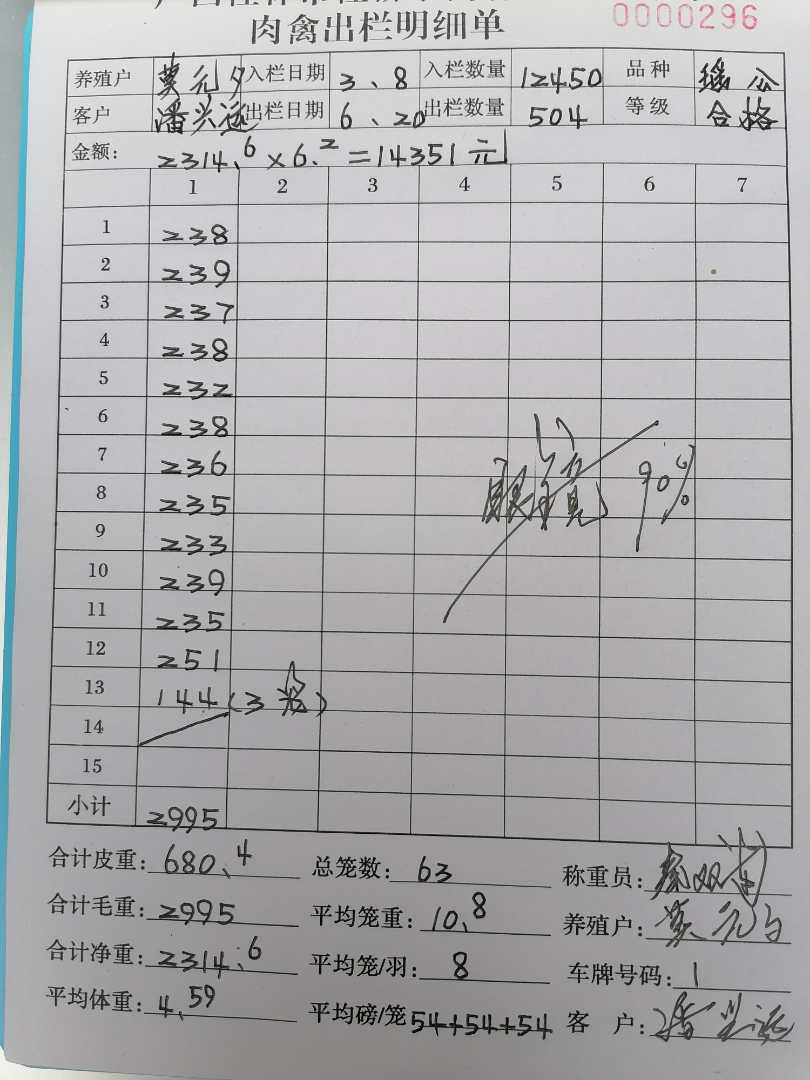 肉禽出栏明细单
0000296
养殖户 莫元 入栏日期 3、8 入栏数量 12450 品种 瑶公
客户 潘兴远 出栏日期 6、20 出栏数量 504 等级 合格
金额: 2314.6×6.2=14351元
1 2 3 4 5 6 7
1 238
2 239
3 237
4 238
5 232
6 238
7 236
8 235
9 233
10 239
11 235
12 251
13 144(3笼)
14
15
90%
小计 2995
合计皮重: 680、4 总笼数: 63 称重员:
合计毛重: 2995 平均笼重: 10、8 养殖户: 莫元
合计净重: 2314、6 平均笼/羽: 8 车牌号码: 1
平均体重: 4、59 平均磅/笼 54+54+54 客 户: 潘兴远